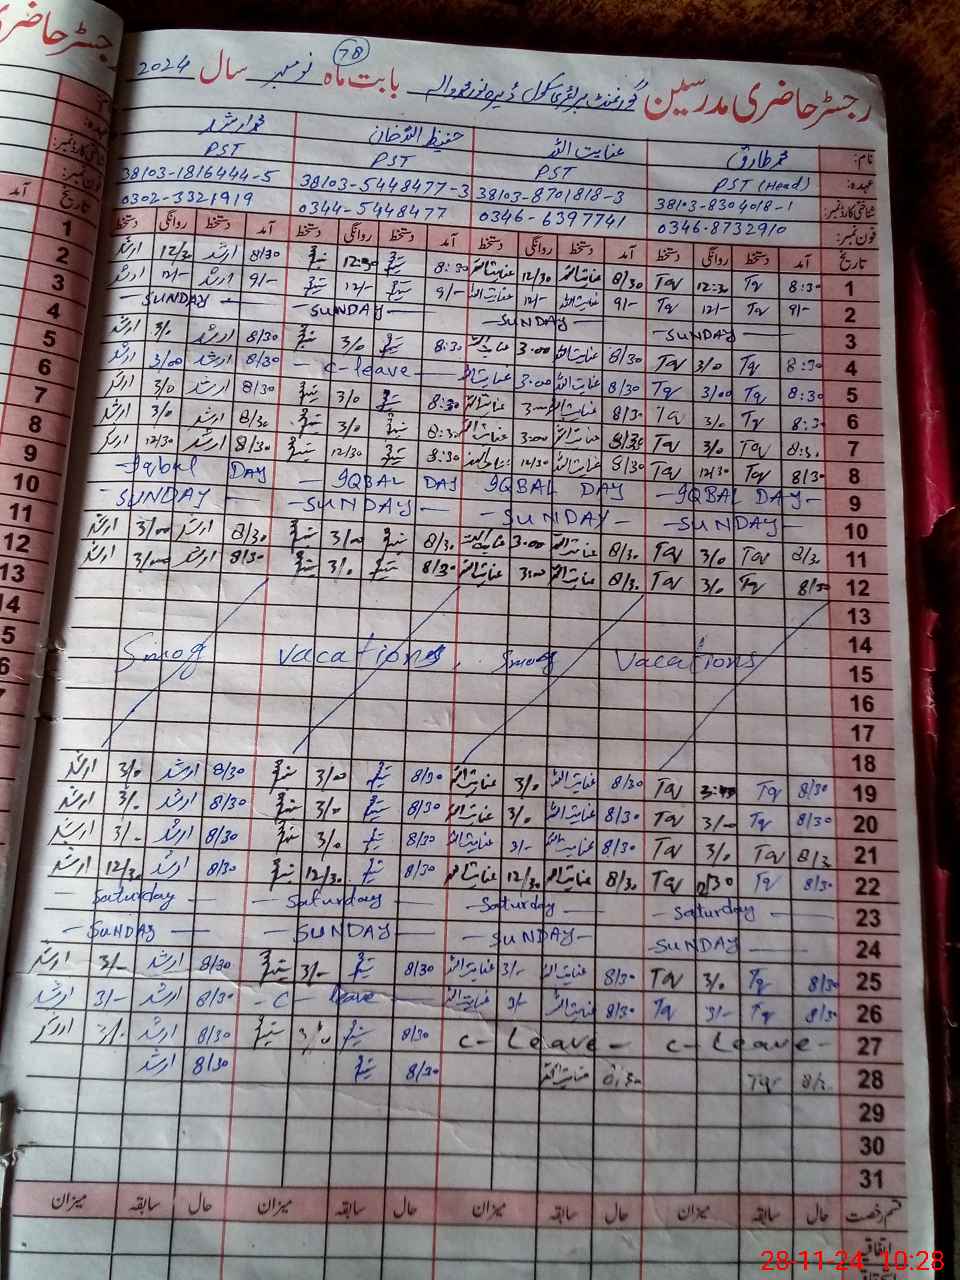 رجسٹر حاضری مدرسین گورنمنٹ پرائمری سکول بابت ماہ نومبر سال 2024
78
نام: محمد طارق عنایت اللہ حفیظ اللہ خان محمد ارشد
عہدہ: PST (Head) PST PST PST
شناختی کارڈ نمبر: 38103-8304018-1 38103-8701818-3 38103-5448477-3 38103-1816444-5
فون نمبر: 0346-8732910 0346-6397741 0344-5448477 0302-3321919
تاریخ آمد دستخط روانگی دستخط آمد دستخط روانگی دستخط آمد دستخط روانگی دستخط آمد دستخط روانگی دستخط
1 8:30 Tq 12:30 Tq 8/30 عنایت اللہ 12/30 عنایت اللہ 8:30 12:30 8/30 ارشد 12/30 ارشد
2 9/- Tq 12/- Tq 9/- عنایت اللہ 12/- عنایت اللہ 9/- 12/- 9/- ارشد 12/- ارشد
3 SUNDAY SUNDAY SUNDAY SUNDAY
4 8:30 Tq 3/0 Tq 8/30 عنایت اللہ 3:00 عنایت اللہ 8:30 3/0 8/30 ارشد 3/0 ارشد
5 8:30 Tq 3/00 Tq 8/30 عنایت اللہ 3:00 عنایت اللہ - C-leave - 8/30 ارشد 3/00 ارشد
6 8:30 Tq 3/0 Tq 8/30 عنایت اللہ 3:00 عنایت اللہ 8:30 3/0 8/30 ارشد 3/0 ارشد
7 8:30 Tq 3/0 Tq 8/30 عنایت اللہ 3:00 عنایت اللہ 8:30 3/0 8/30 ارشد 3/0 ارشد
8 8/30 Tq 12/30 Tq 8/30 عنایت اللہ 12/30 عنایت اللہ 8:30 12/30 8/30 ارشد 12/30 ارشد
9 -IQBAL DAY- IQBAL DAY - IQBAL DAY -Iqbal DAY
10 -SUNDAY- -SUNDAY- -SUNDAY- -SUNDAY-
11 8/30 Tq 3/0 Tq 8/30 عنایت اللہ 3:00 عنایت اللہ 8/30 3/00 8/30 ارشد 3/00 ارشد
12 8/30 Tq 3/0 Tq 8/30 عنایت اللہ 3:00 عنایت اللہ 8/30 3/0 8/30 ارشد 3/00 ارشد
13
14
Smog vacations. Smog Vacations
15
16
17
18
19 8/30 Tq Tq 8/30 عنایت اللہ 3/0 عنایت اللہ 8/30 3/0 8/30 ارشد 3/0 ارشد
20 8/30 Tq 3/-0 Tq 8/30 عنایت اللہ 3/0 عنایت اللہ 8/30 3/0 8/30 ارشد 3/0 ارشد
21 8/30 Tq 3/0 Tq 8/30 عنایت اللہ 3/- عنایت اللہ 8/30 3/0 8/30 ارشد 3/- ارشد
22 8/30 Tq 12/30 Tq 8/30 عنایت اللہ 12/30 عنایت اللہ 8/30 12/30 8/30 ارشد 12/30 ارشد
23 Saturday Saturday Saturday Saturday
24 SUNDAY SUNDAY SUNDAY SUNDAY
25 8/30 Tq 3/0 Tq 8/30 عنایت اللہ 3/- عنایت اللہ 8/30 3/- 8/30 ارشد 3/- ارشد
26 8/30 Tq 3/- Tq 8/30 عنایت اللہ 3/- عنایت اللہ - C- leave 8/30 ارشد 3/- ارشد
27 C- Leave- C- Leave- 8/30 3/0 8/30 ارشد 3/0 ارشد
28 8/30 Tq 8:30 عنایت اللہ 8/30 8/30 ارشد
29
30
31
قسم رخصت حال سابقہ میزان حال سابقہ میزان حال سابقہ میزان حال سابقہ میزان
اتفاقیہ
رجسٹر حاضری
عہدہ:
شناختی کارڈ نمبر:
فون نمبر:
تاریخ آمد
1
2
3
4
5
6
7
8
9
10
11
12
13
14
28-11-24 10:28